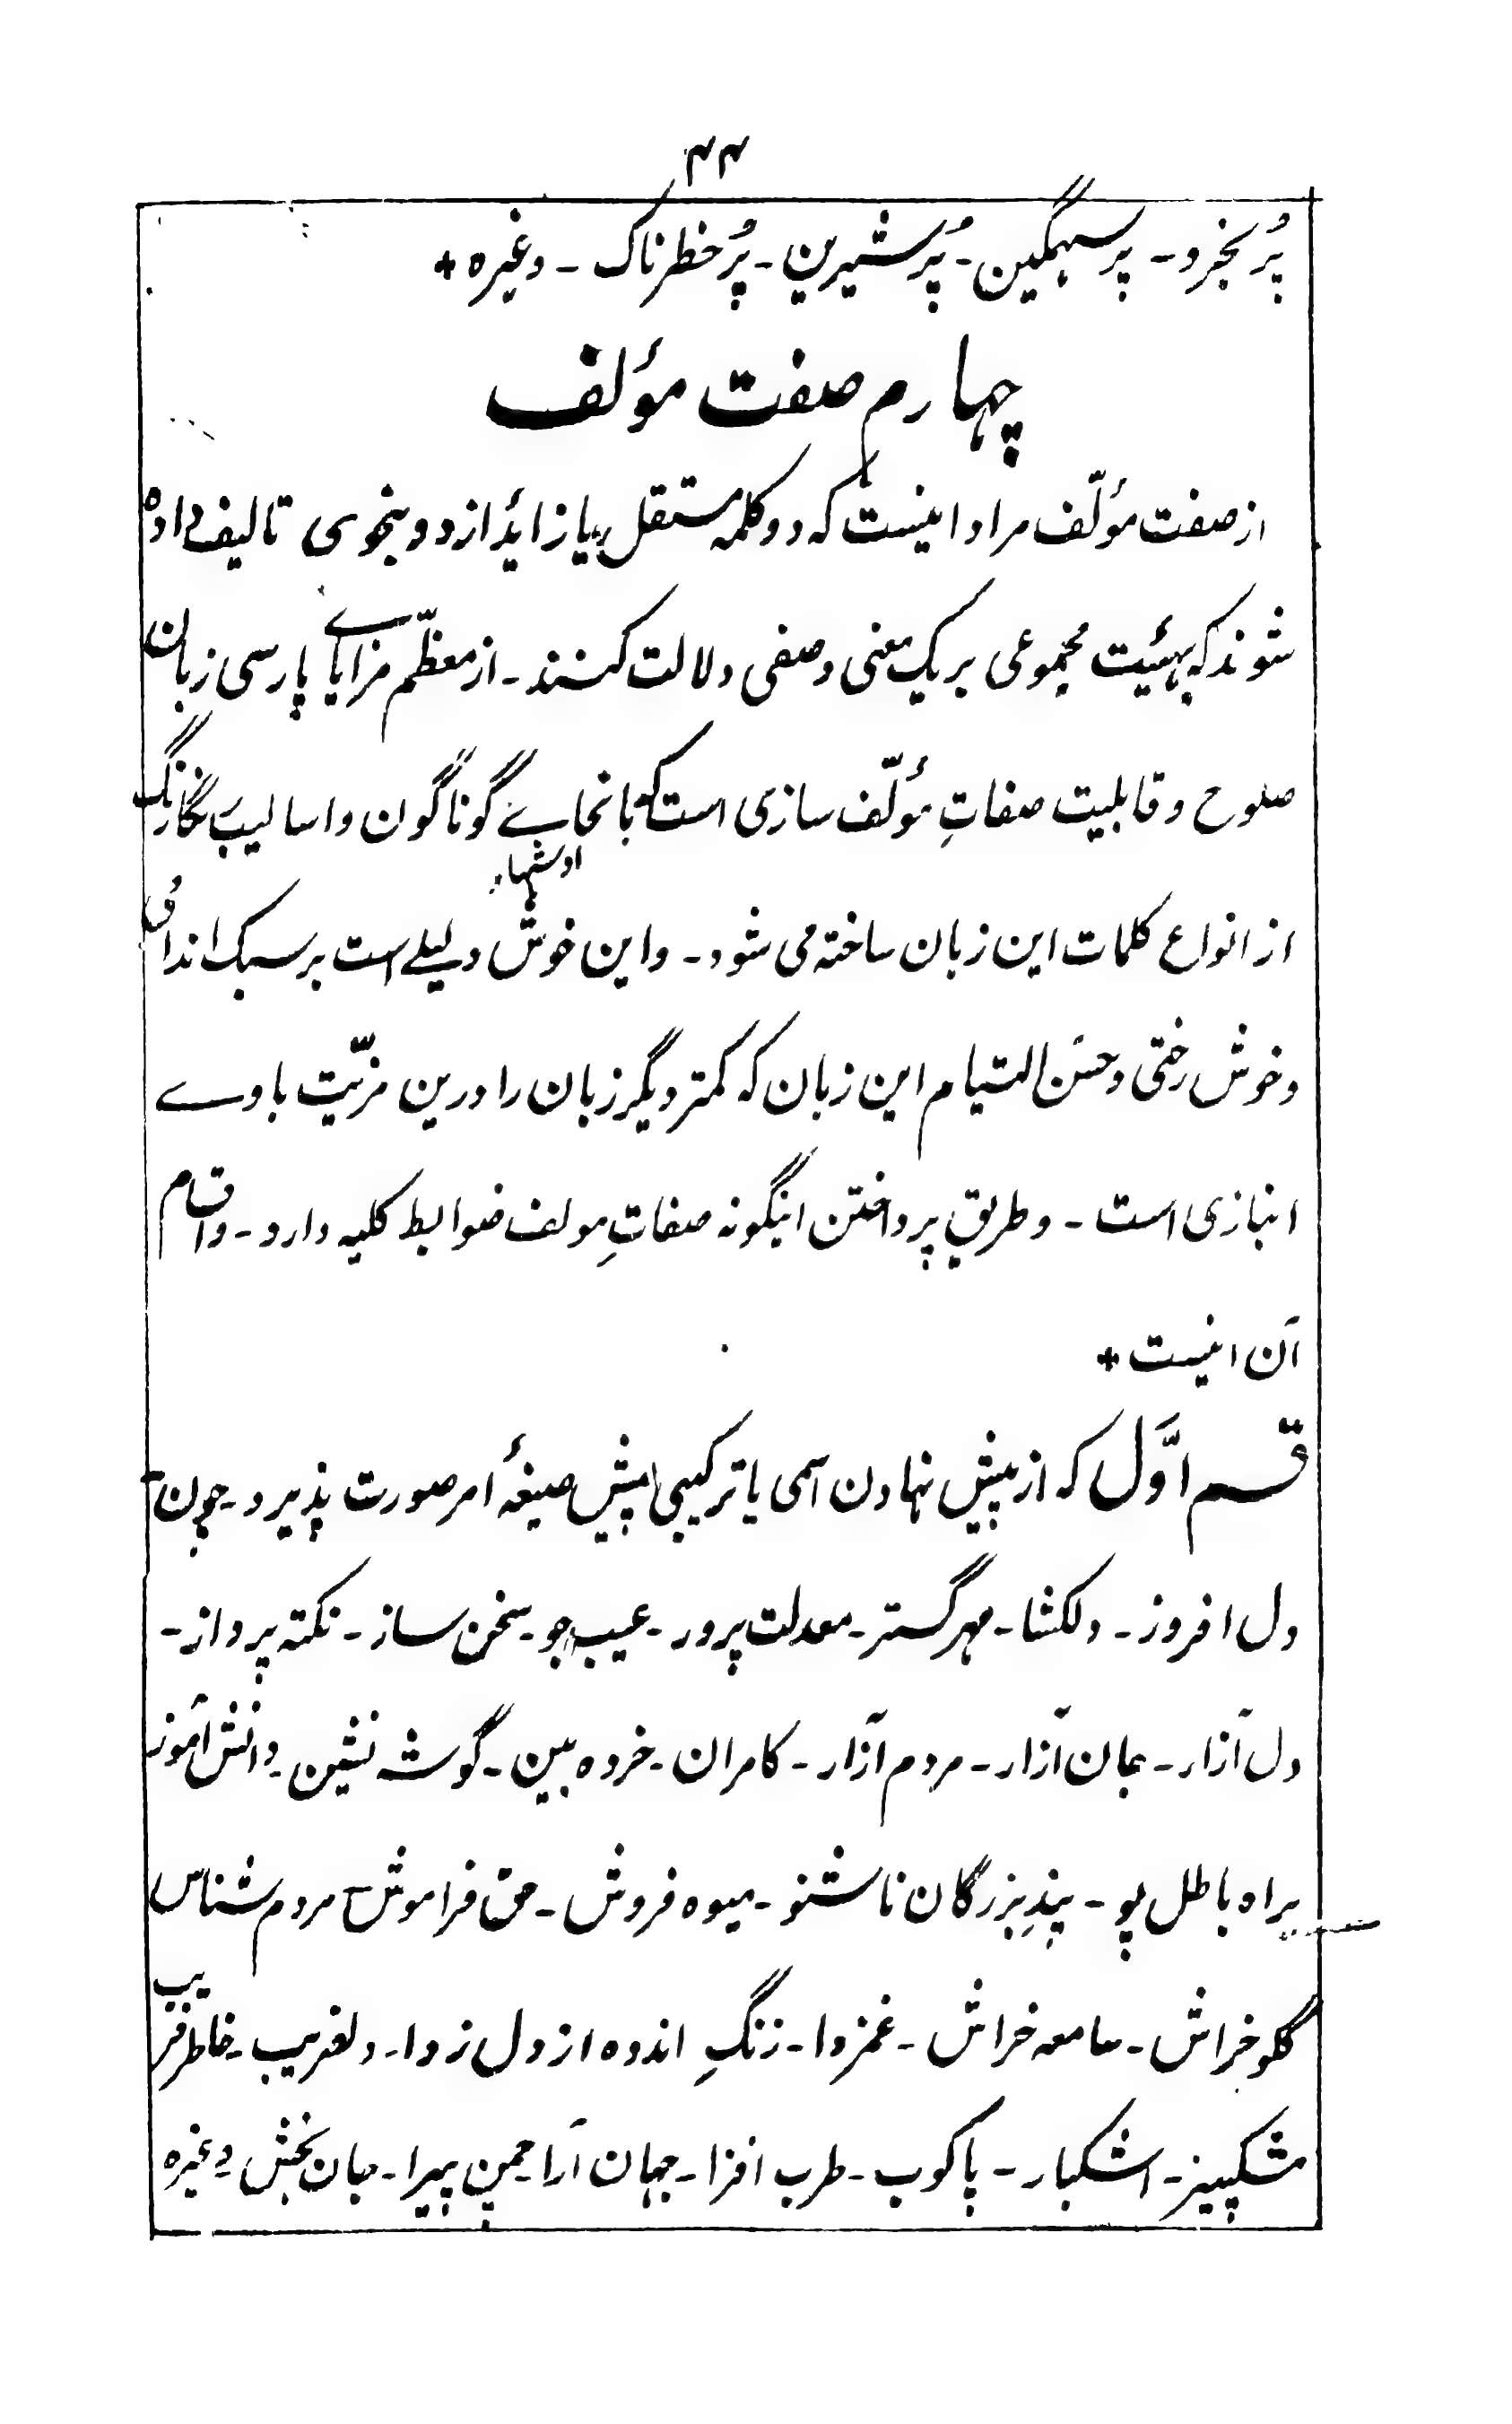 ۴۴
پُر بخرد - پر سهمگین - پُر شیرین - پُر خطرناک - وغیره +
چهارم صفت مؤلف
از صفت مؤلّف مراد اینست که دو کلمه مستقل یا زاید از دو بنحوی تالیف داده
شوند که بهیئت مجموعی بر یک معنی وصفی دلالت کنند - از معظّم مزایاے پارسی زبان
صلوح و قابلیت صفاتِ مؤلّف سازی است که بانحاے گوناگون و اسالیب
از انواع کلمات این زبان ساخته می شود - و این خوش دلیلے است بر سبک اندامی
و خوش رختی و حسن التیام این زبان که کمتر دیگر زبان را درین مزیّت باوے
انبازی است - و طریق پرداختن اینگونه صفاتِ مولف ضوابط کلیه دارد - و اقسام
آن اینست +
قسم اوّل که از پیش نهادن اسمی یا ترکیبی پیش صیغهٔ امر صورت پذیرد - چون
دل افروز - دلکشا - مهر گستر - معدلت پرور - عیب جو - سخن ساز - نکته پرداز -
دل آزار - جان آزار - مردم آزار - کامران - خرده بین - گوشه نشین - دانش آموز
براه باطل پو - پندِ بزرگان ناشنو - میوه فروش - حق فراموش - مردم شناس
گلو خراش - سامعه خراش - غمزدا - زنگِ اندوه از دل زدا - دلفریب - خاطر فریب
مشکبیز - اشکبار - پاکوب - طرب افزا - جهان آرا - چمن پیرا - جان بخش وغیره